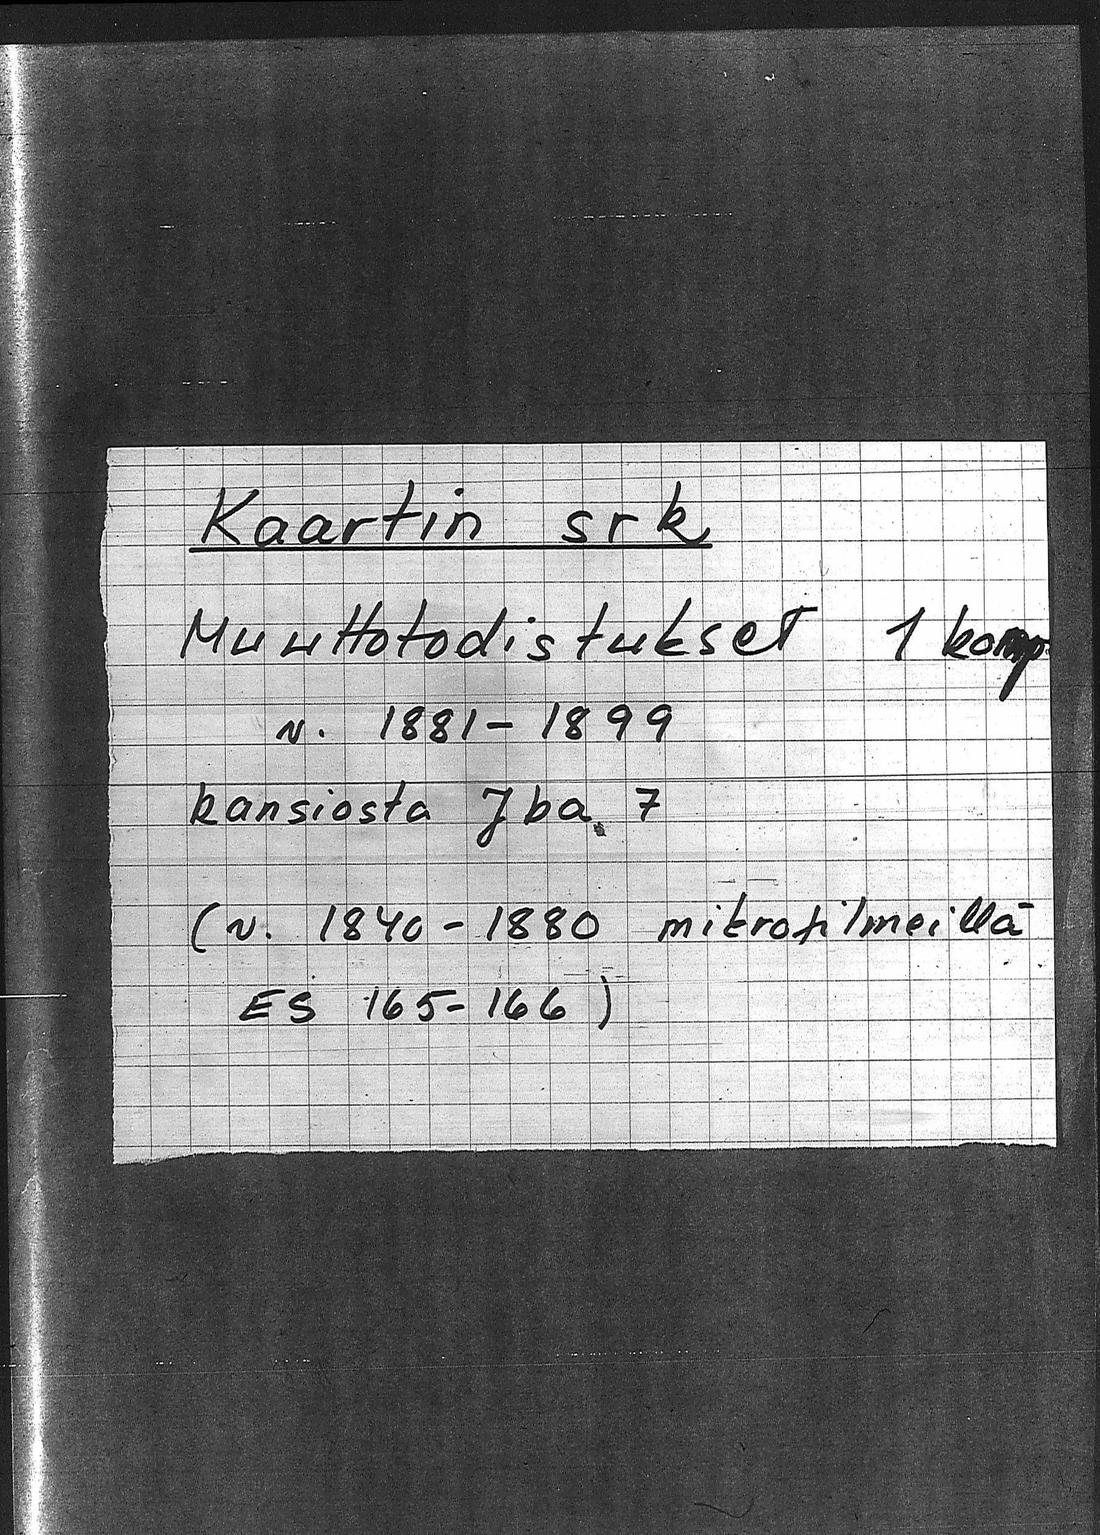 Kaartin srk
Muuttotodistukset 1 komp.
v. 1881-1899
kansiosta Jba 7
(v. 1840-1880 mikrofilmeillä
ES 165-166)